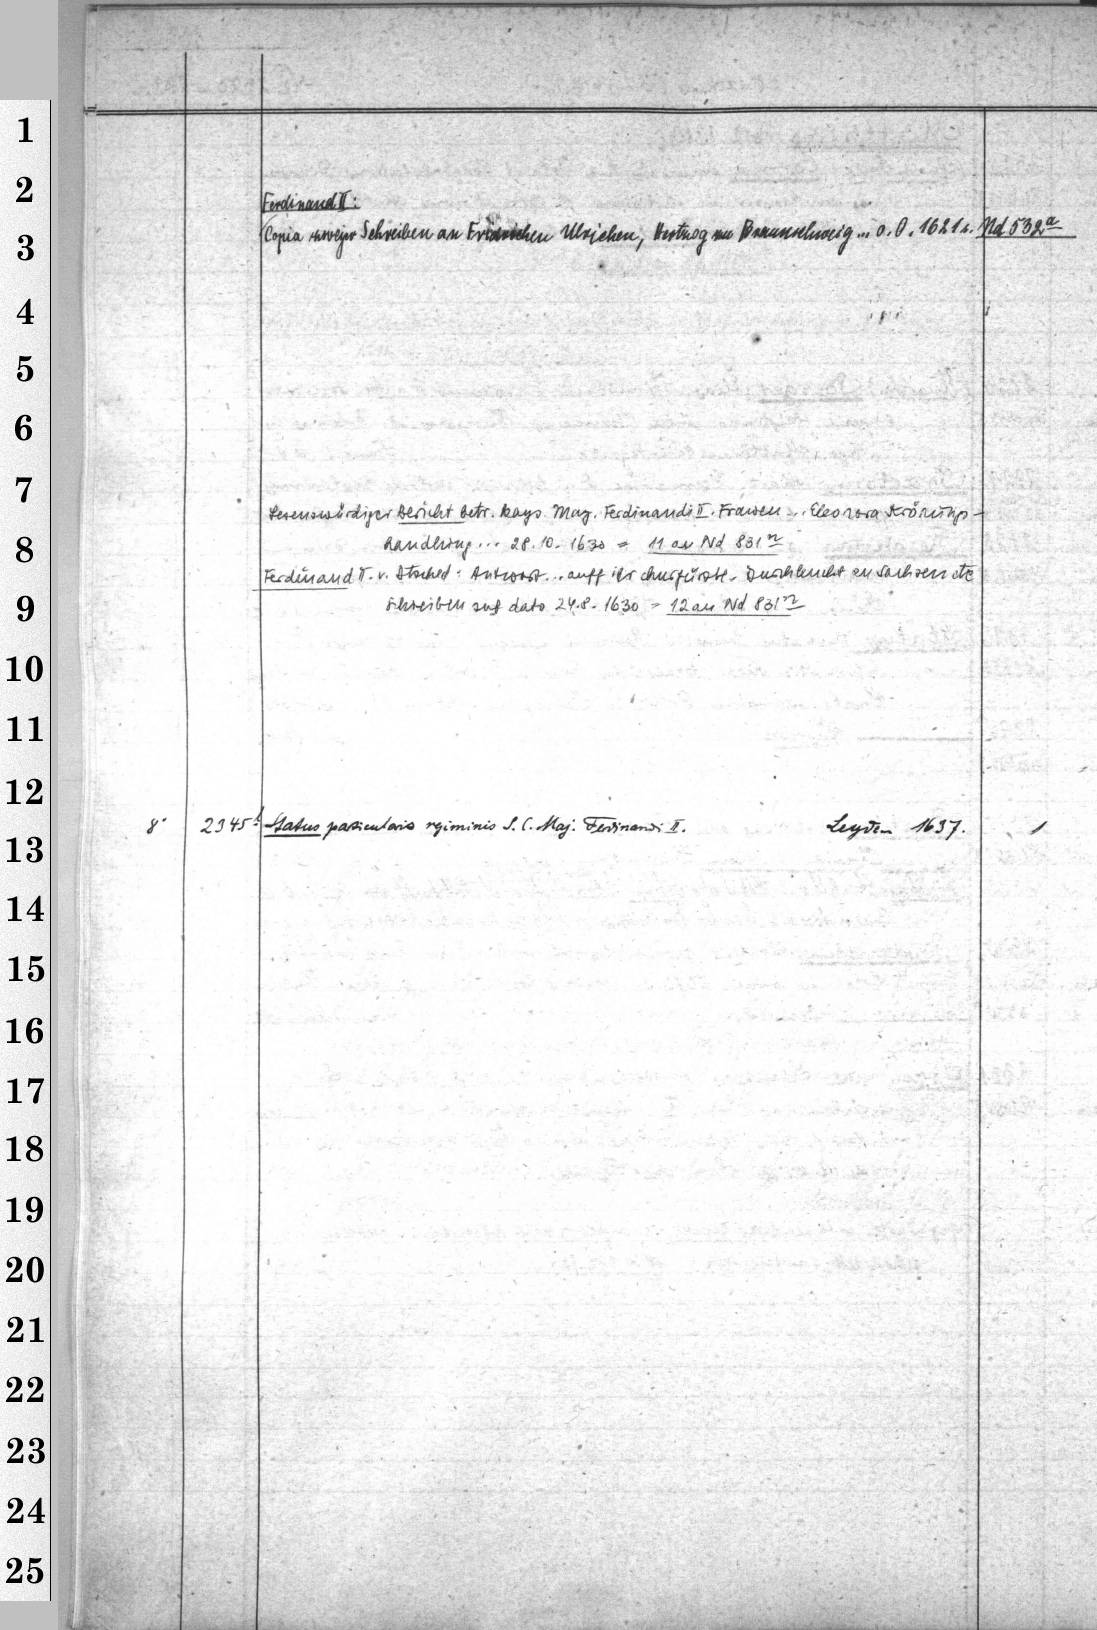 1
2
Ferdinand II:
3
Copia zweyer Schreiben an Friedrichen Ulrichen, Hertzog zu Braunschweig... o. O. 1621. Nd 532ᵃ
4
5
6
7
Lesenswürdiger Bericht betr. kays. May. Ferdinandi II. Frawen... Eleonora Krönungs-
8
handlung... 28.10.1630 = 11 an Nd 831ⁿ
Ferdinand II. v. : Antwort... auff ihr churfürstl. Durchleucht zu Sachsen etc
9
Schreiben auf dato 24.8.1630 = 12 an Nd 831ⁿ
10
11
12
8° 2345 Status particularis regiminis S. C. Maj. Ferdinandi II. Leyden 1637. 1
13
14
15
16
17
18
19
20
21
22
23
24
25